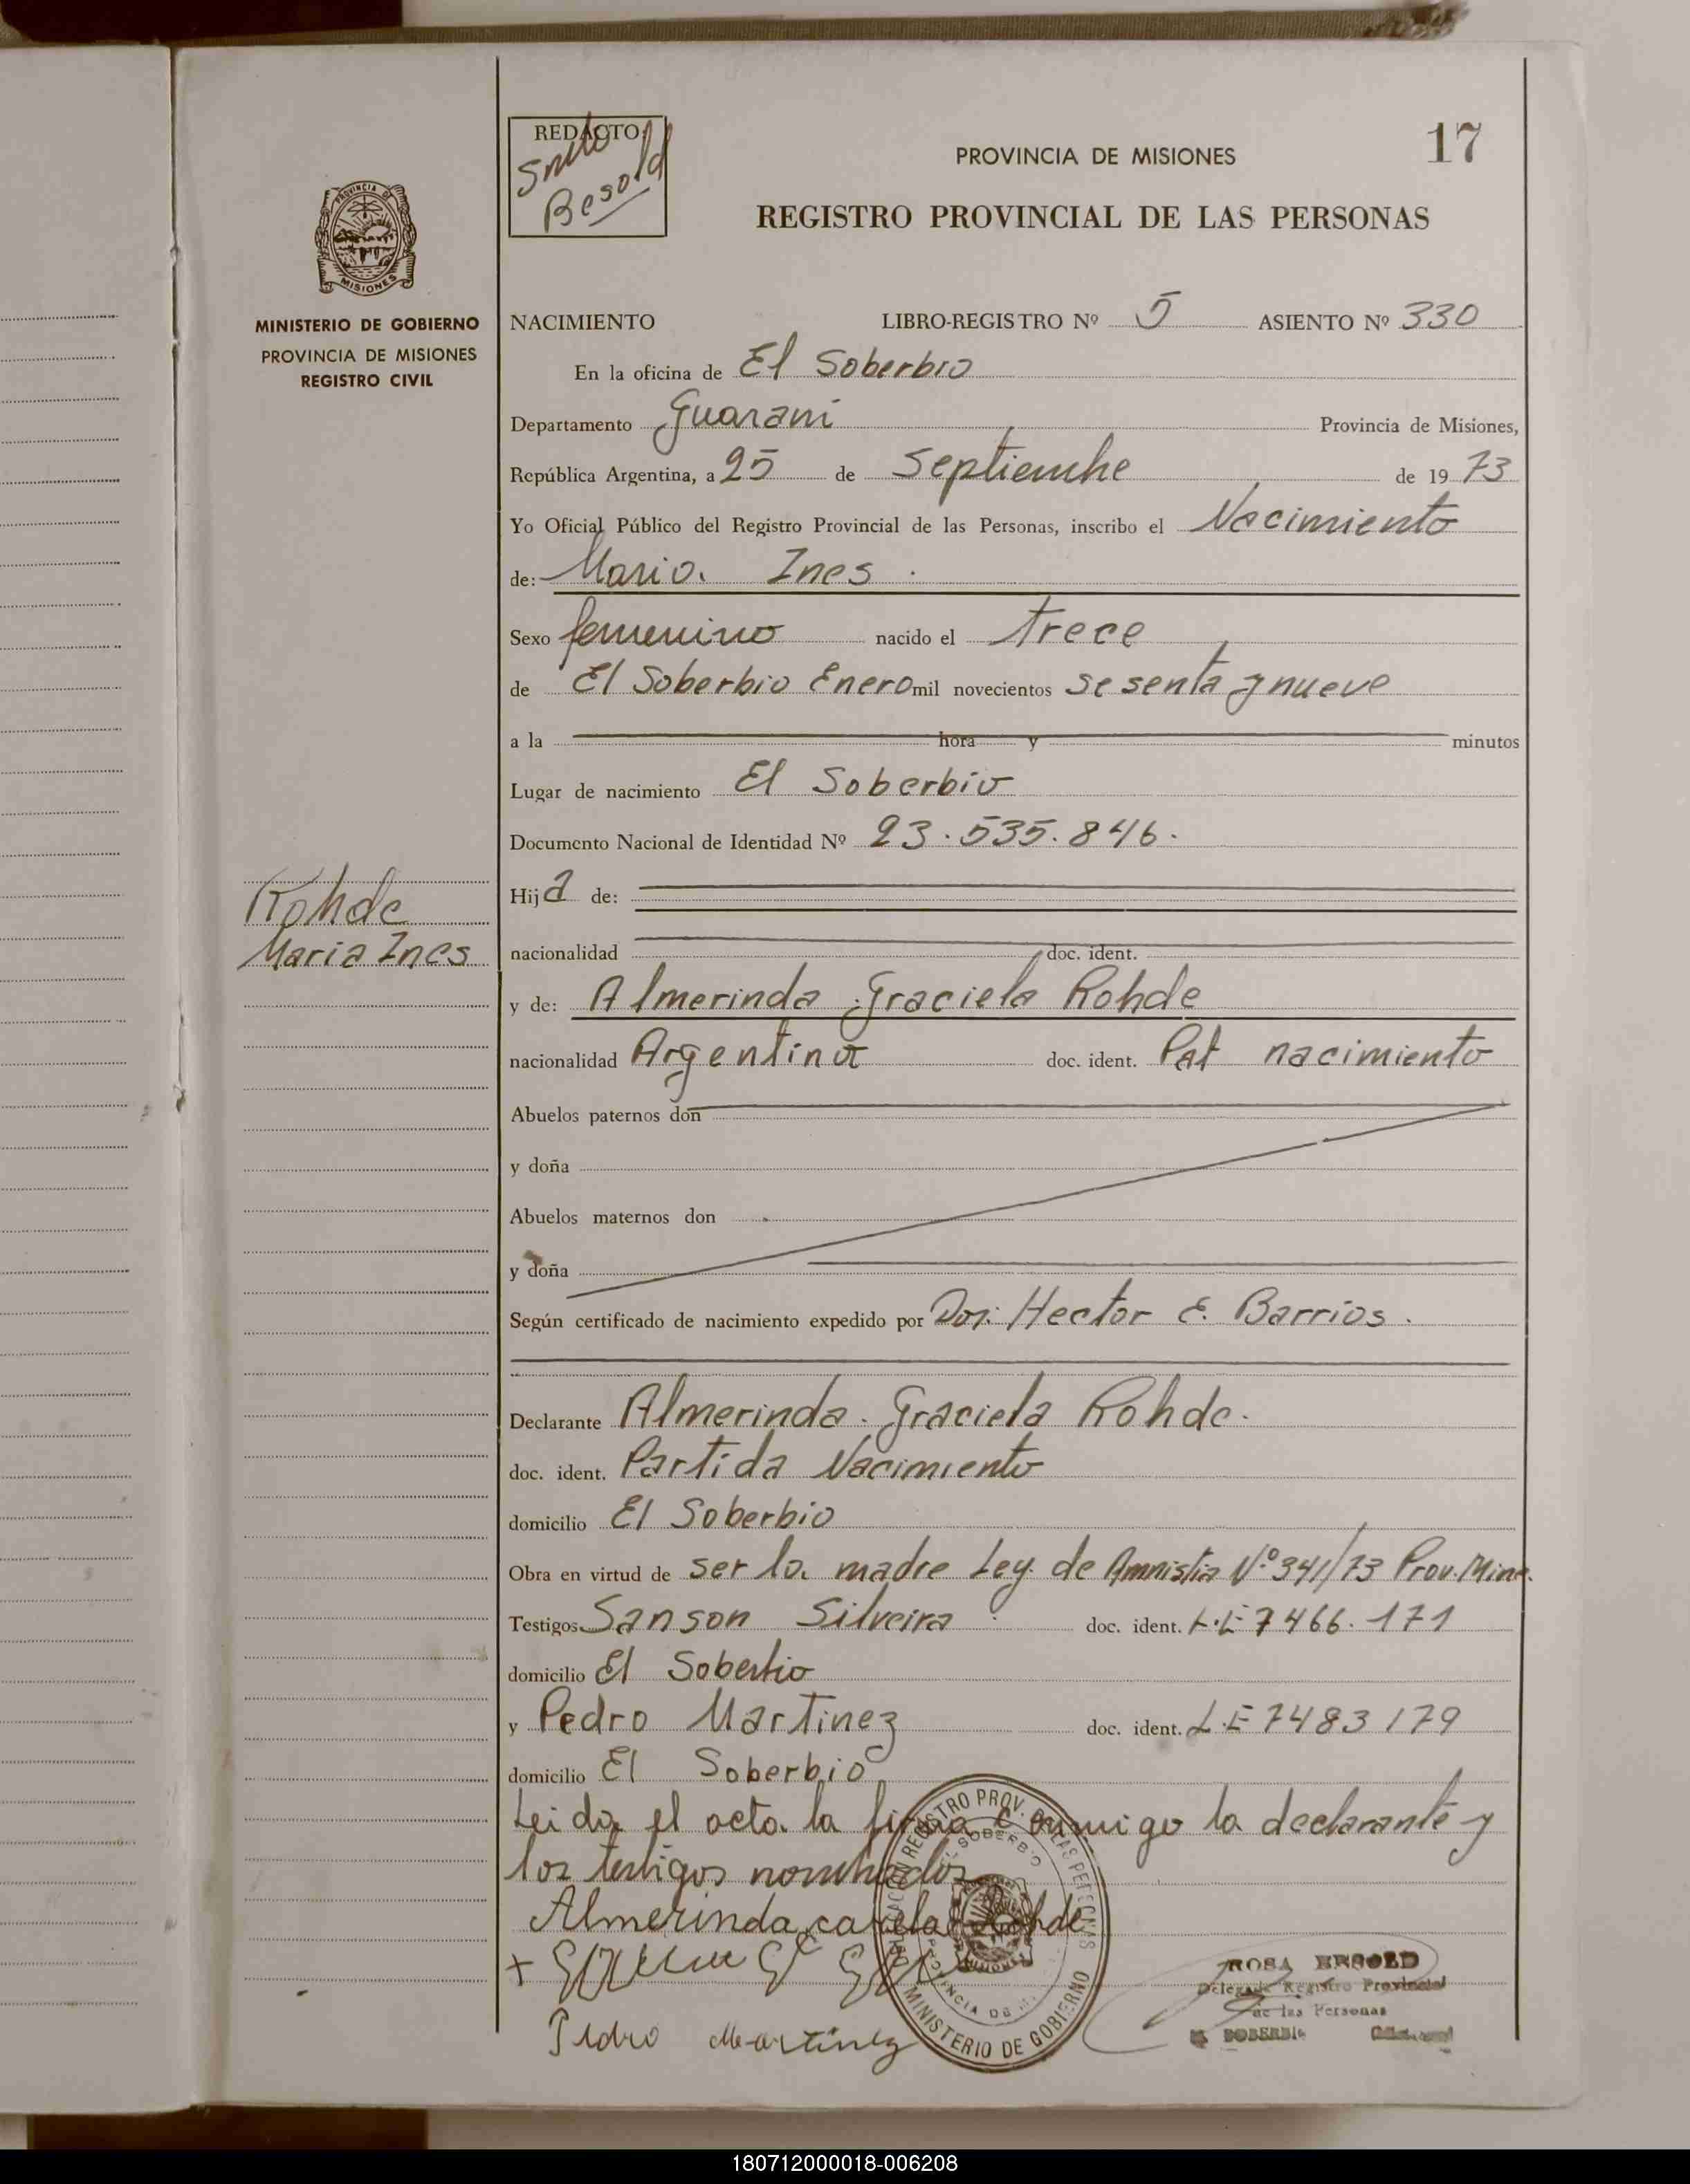 17
REDACTO
Besold
PROVINCIA DE MISIONES
REGISTRO PROVINCIAL DE LAS PERSONAS
PROVINCIA DE
MISIONES
MINISTERIO DE GOBIERNO
PROVINCIA DE MISIONES
REGISTRO CIVIL
NACIMIENTO LIBRO-REGISTRO Nº 5 ASIENTO Nº 330
En la oficina de El Soberbio
Departamento Guarani Provincia de Misiones,
República Argentina, a 25 de Septiembre de 19 73
Yo Oficial Público del Registro Provincial de las Personas, inscribo el Nacimiento
de: Maria Ines
Sexo femenino nacido el trece
de El Soberbio Enero mil novecientos sesenta y nueve
a la hora y minutos
Lugar de nacimiento El Soberbio
Documento Nacional de Identidad Nº 23.535.846.
Hija de:
Rohde
Maria Ines
nacionalidad doc. ident.
y de: Almerinda Graciela Rohde
nacionalidad Argentina doc. ident. Pat nacimiento
Abuelos paternos don
y doña
Abuelos maternos don
y doña
Según certificado de nacimiento expedido por Hector E. Barrios.
Declarante Almerinda Graciela Rohde.
doc. ident. Partida Nacimiento
domicilio El Soberbio
Obra en virtud de ser la madre Ley de Amnistia Nº 341/73 Prov.
Testigos Sanson Silveira doc. ident. L.E 7466.171
domicilio El Soberbio
y Pedro Martinez doc. ident. L.E 7483179
domicilio El Soberbio
Leida el acta la firma conmigo la declarante y
los testigos nombrados
Almerinda Rohde
Pedro Martinez
MINISTERIO DE GOBIERNO
ROSA BESOLD
Delegada Registro Provincial
de las Personas
EL SOBERBIO
180712000018-006208